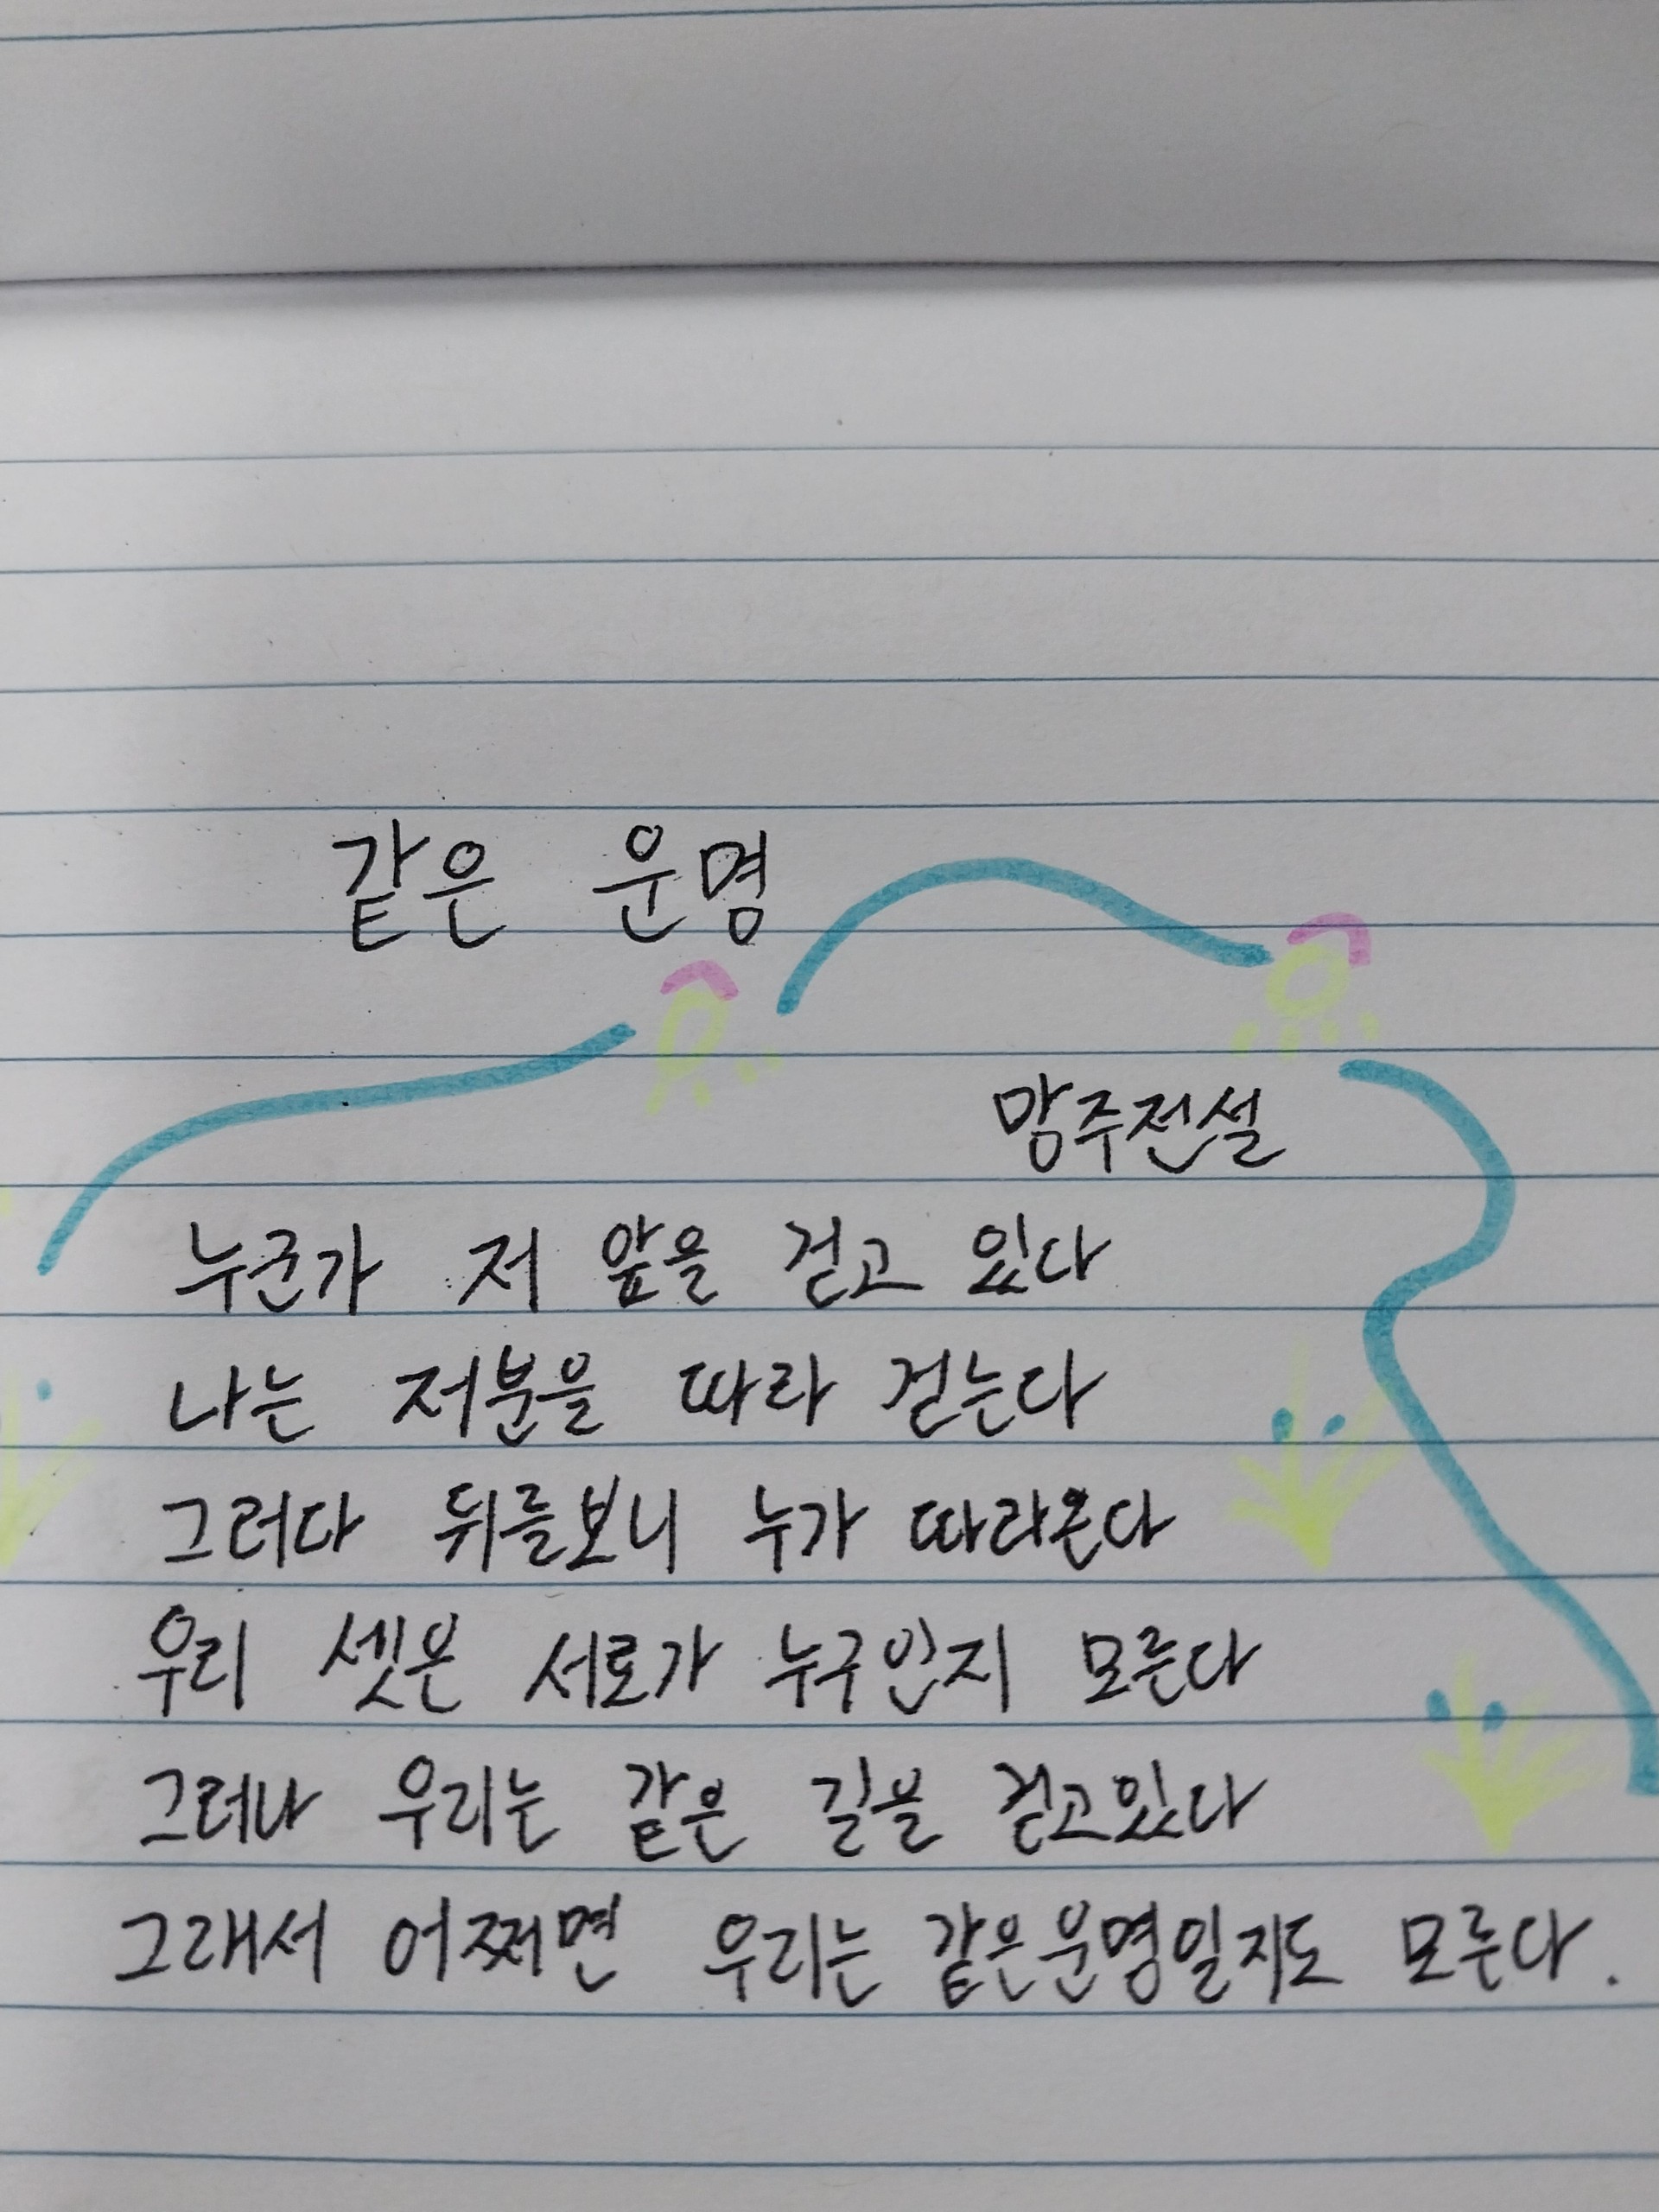 같은 운명
망주전설
누군가 저 앞을 걷고 있다
나는 저분을 따라 걷는다
그러다 뒤를보니 누가 따라온다
우리 셋은 서로가 누구인지 모른다
그러나 우리는 같은 길을 걷고있다
그래서 어쩌면 우리는 같은운명일지도 모른다.